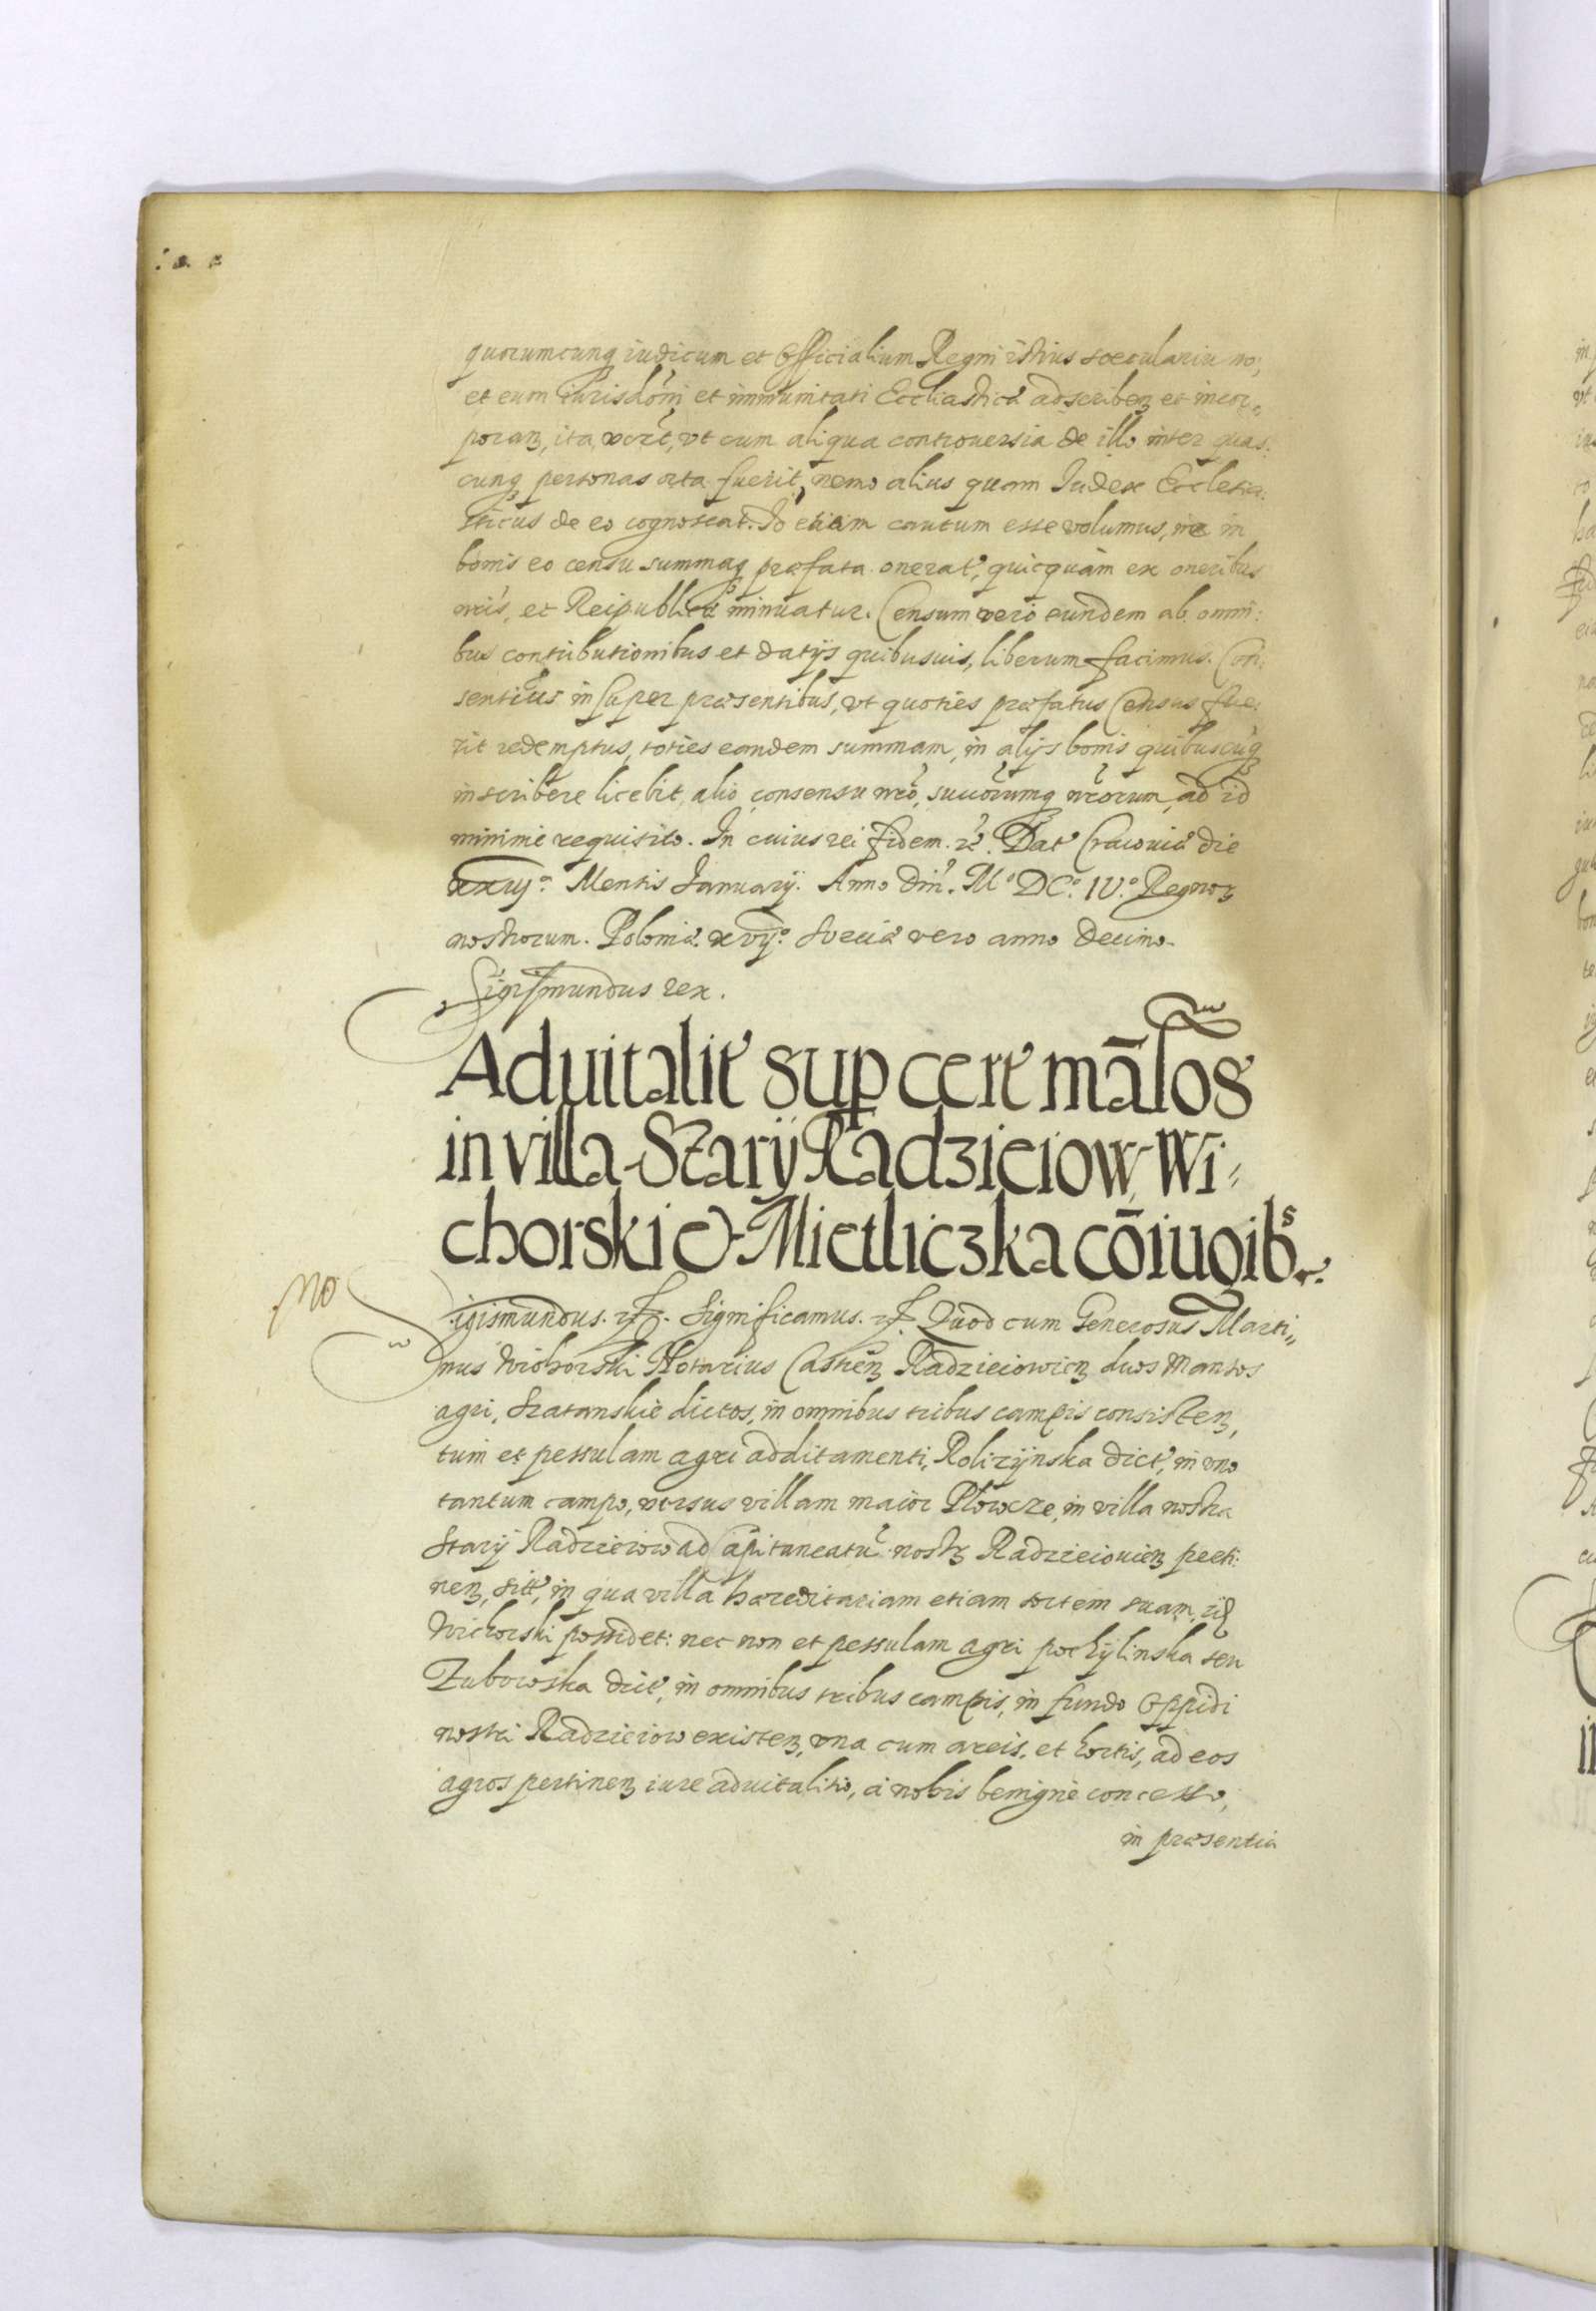 quorumcunq iudicum et Officialium Regni istius soecularium no,
et eum iurisdoni et immunitati Eccliasticæ adscribenz et incor,
poranz, ita vert, vt cum aliqua controuersia de illo inter quas:
cunq personas orta fuerit, nemo alius quam Iudex Ecclesia:
sticus de eo cognoscat. Id etiam cautum esse volumus, ne in
bonis eo censu summaq præfata onerat, quicquam ex oneribus
nris, et Reipublicæ minuatur. Censum vero eundem ab omni:
bus contributionibus et datijs quibusuis, liberum facimus. Con:
sentieus insuper præsentibus, vt quoties præfatus Census fue:
rit redemptus, toties eandem summam, in alijs bonis quibuscuq
inscribere licebit, alio consensu nro, succorumq nrorum, ad id
minime requisito. In cuius rei fidem. rc. Dat Cracouiæ die
Mensis Ianuarij. Anno Dni. Mº DCº. IVº. Regnorz
nostrorum. Poloniæ. xvijº. Sueciæ vero anno Decimo.
Sigismundus rex.
Aduitalit sup cert mālos
in villa Starÿ Radzieiow Wi
chorski & Mietliczka cōiugibs
Sigismundus. rc. Significamus. rc. Quod cum Generosus Marti,,
nus Wichorski Notarius Castrenz Radzieiowienz duos Mansos
agri, Szatanskie dictos, in omnibus tribus campis consistenz,
tum et pessulam agri additamenti, Rolizÿnska dict, in vno
tantum campo, versus villam maior Plowcze, in villa nostra
Starÿ Radzieiow ad Capitaneatu nostrz Radzieiouienz perti:
nenz, sit, in qua villa hæreditariam etiam sortem suam, id
Wichorski possidet: nec non et pessulam agri pochÿlinska seu
Zubowska dict, in omnibus tribus campis, in fundo Oppidi
nostri Radzieiow existenz, vna cum areis, et hortis, ad eos
agros pertinenz iure aduitalitio, à nobis benigne concesso,
in præsentia